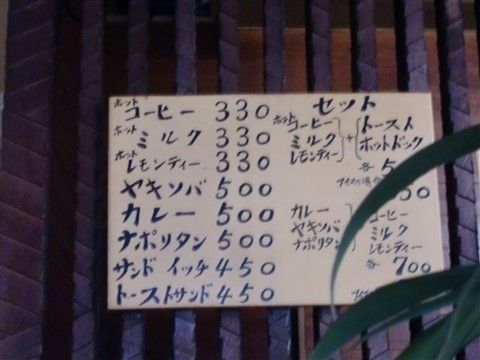 ホット コーヒー 330
ホット ミルク 330
ホット レモンティー 330
ヤキソバ 500
カレー 500
ナポリタン 500
サンドイッチ 450
トーストサンド 450
セット
ホット コーヒー
ミルク
レモンティー
+
トースト
ホットドック
各 5
アイスの場合
50
カレー
ヤキソバ
ナポリタン
コーヒー
ミルク
レモンティー
各 700
アイス